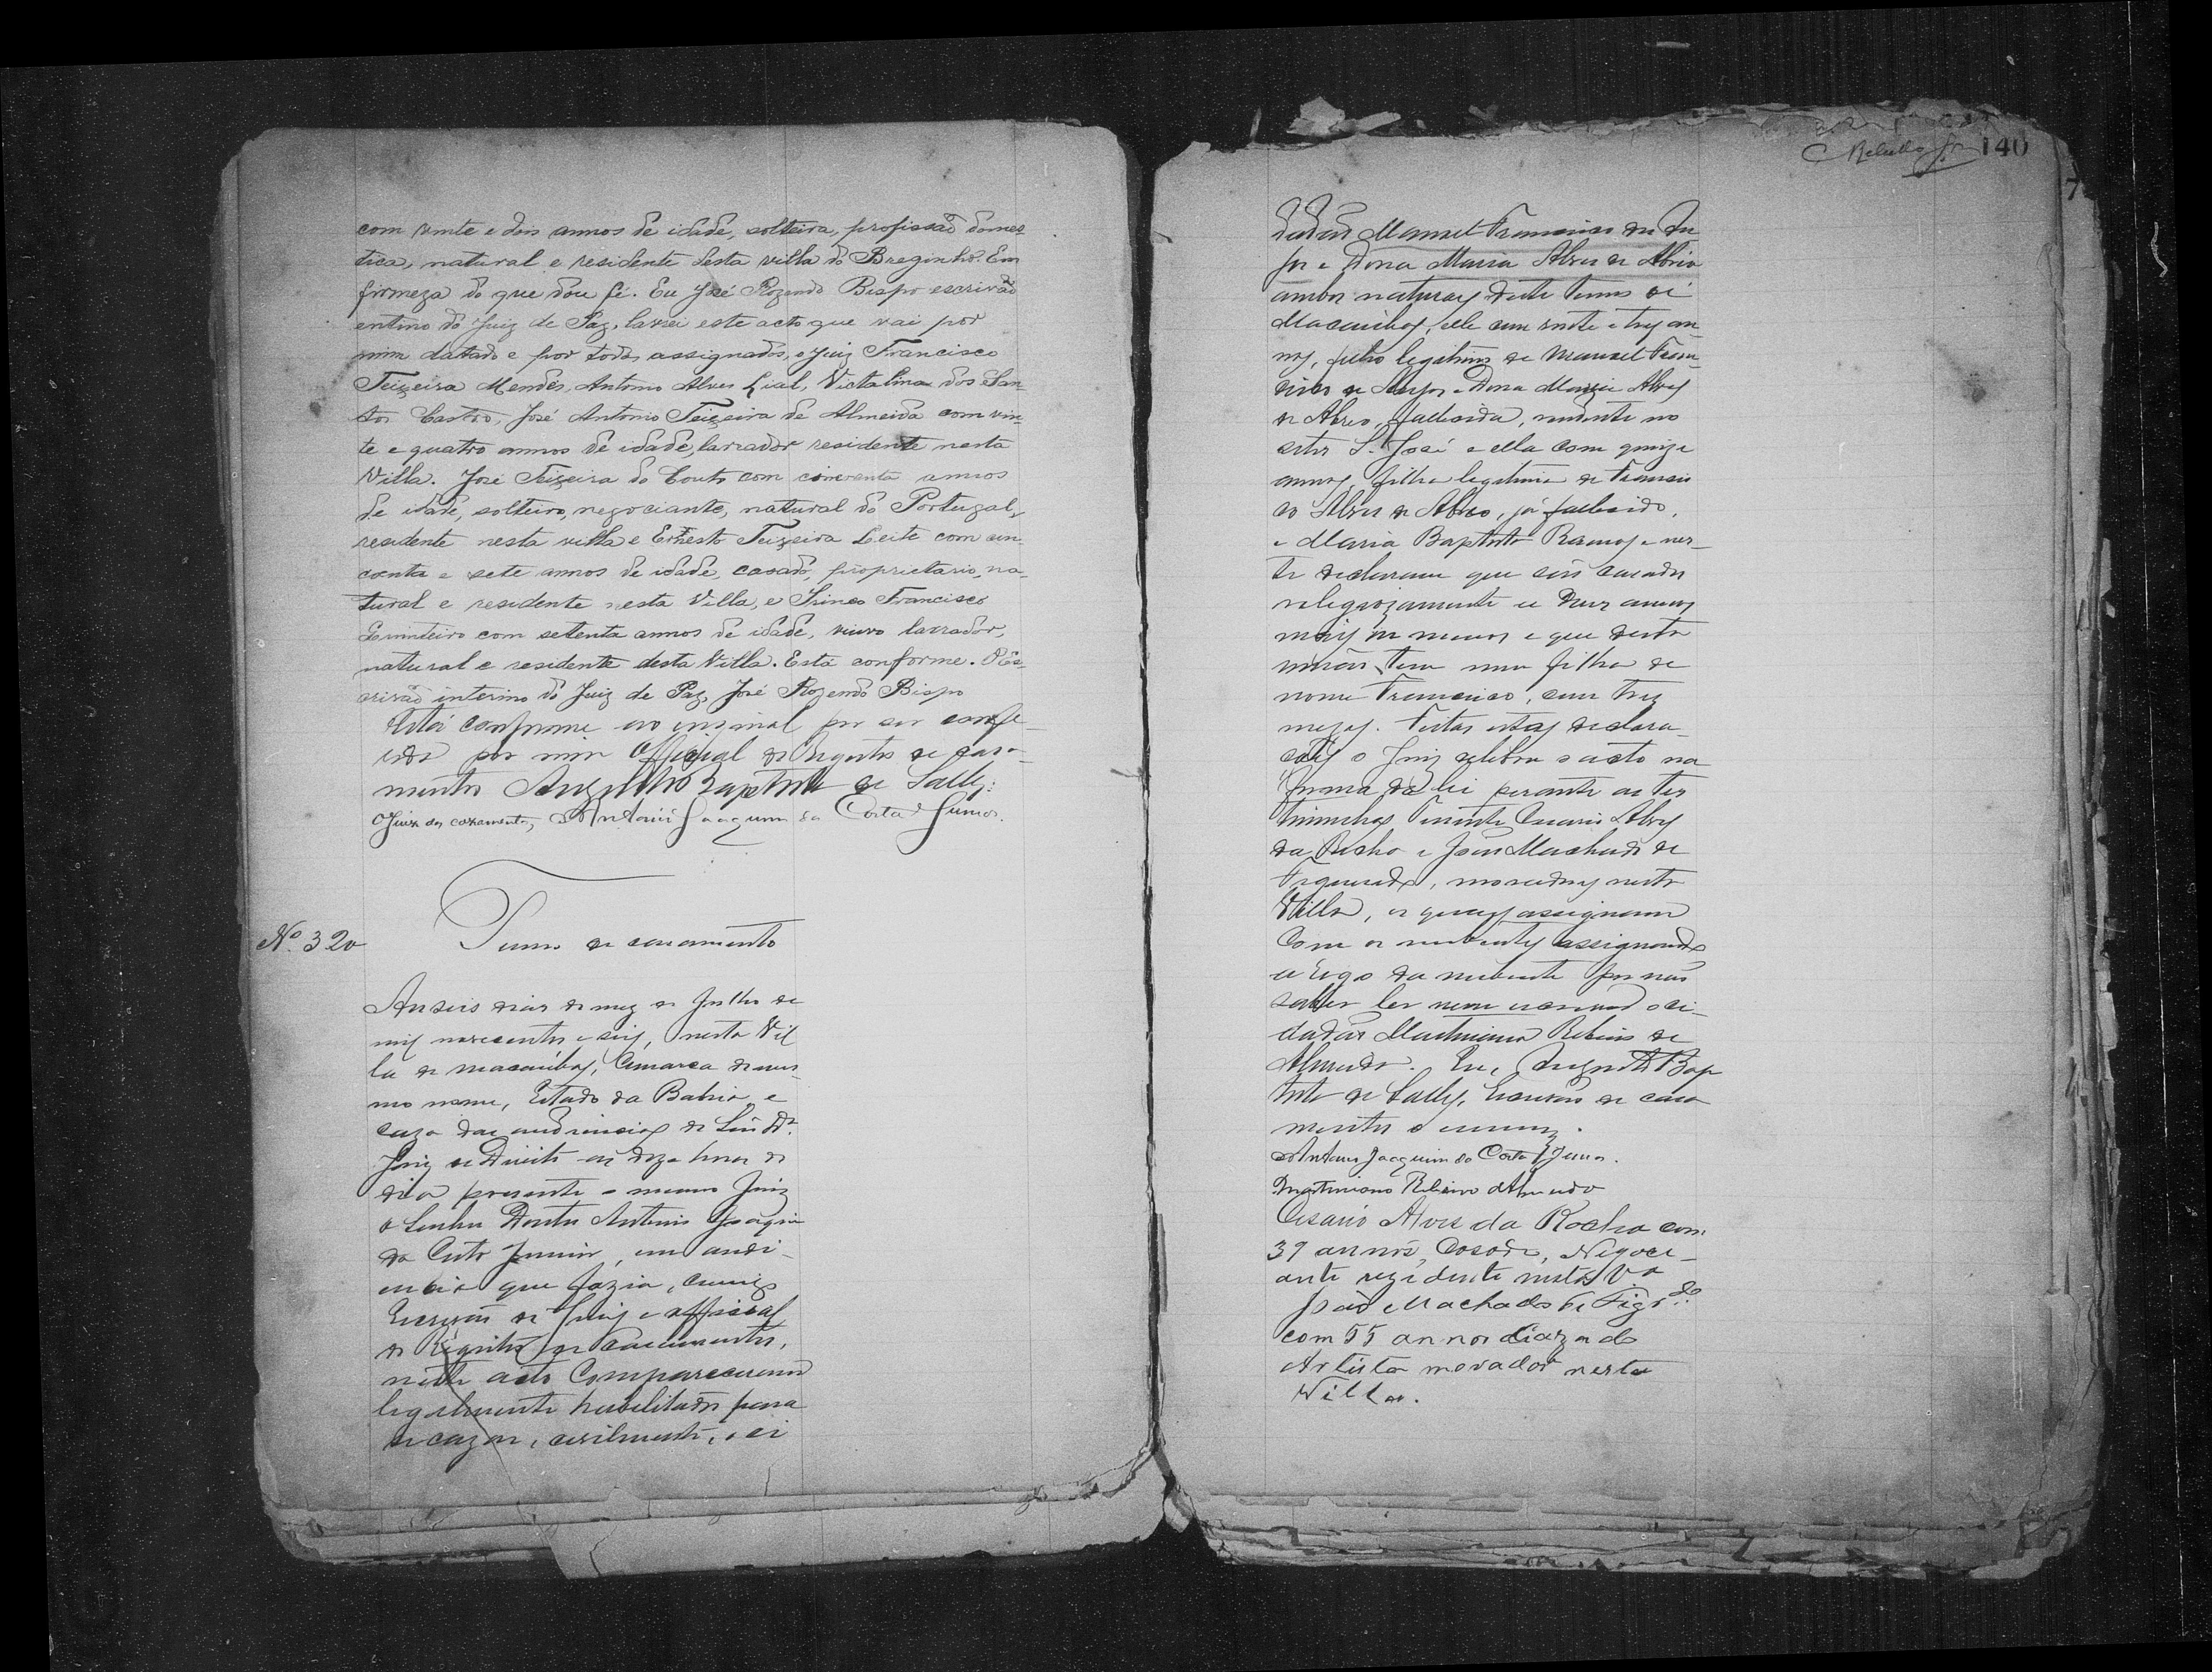 com vinte e dois annos de idade, solteira, profissão domes-
tica, natural e residente desta villa do Breginho. Em
firmeza do que dou fé. Eu José Rozendo Bispo escrivão
entirno do Juiz de Paz, lavrei este acto que vai por
mim datado e por todos assignados, o Juiz Francisco
Teixeira Mendes, Antonio Alves Leal, Victalina dos San-
tos Castro, José Antonio Teixeira de Almeida com vin-
te e quatro annos de idade, lavrador residente nesta
Villa. José Teixeira do Couto com annos
de idade, solteiro, negociante, natural do Portugal,
residente nesta villa e Ernesto Teixeira Leite com cin-
coenta e sete annos de idade, casado, proprietario, na-
tural e residente nesta Villa, e Francisco
com setenta annos de idade, viuvo lavrador,
natural e residente desta Villa. Está conforme. O Es-
crivão interino do Juiz de Paz, José Rozendo Bispo
Está conforme ao original por ser confe-
rido por mim Official do Registro de casa-
mentos Augusto Baptista de Salles.
O Juiz dos casamentos, Antonio Joaquim da Costa Junior.
Nº. 320
Termo de casamento
Aos seis dias do mez de Julho de
mil novecentos e seis, nesta Vil
la de Macaúbas, Comarca do mes-
mo nome, Estado da Bahia, e
caza das audiencias do Snr Dr.
Juiz de Direito as doze horas do
dia presente o mesmo Juiz
o Senhor Doutor Antonio Joaquim
da Costa Junior, em audi-
encia que fazia, comigo
Escrivão do Juiz e official
do Registro de Casamentos,
neste acto Compareceram
legalmente habilitados para
se cazar, civilmente, o ci
140
dadão Manoel Francisco de
e Dona Maria Alves de Abreo
ambos naturaes deste termo de
Macaúbas, elle com vinte e tres an
nos, filho legitimo de Manoel Fran-
cisco de e Dona Maria Alves
de Abreo, fallecida, residente no
sitio S. José e ella com quinze
annos, filha legitima de Francis
co Alves de Abreo, já fallecido,
e Maria Baptista Ramos e nes-
te declararam que são casados
religiozamente a dous annos
mais ou menos e que desta
união tem um filho de
nome Francisco, com tres
mezes. Feitas estas declara-
ções o Juiz celebrou o acto na
forma da lei perante as tes
timunhas Tenente Cesario Alves
da Rocha e João Machado de
Figueredo, moradores nesta
Villa, os quaes assignaram
Com os nubentes assignando
a rogo da nubente por não
saber ler nem escrever o ci-
dadão Martiniano Ribeiro de
Almeida. Eu, Augusto Bap
tista de Salles, Escrivão de casa
mentos o escrevi.
Antonio Joaquim da Costa Junior.
Martiniano Ribeiro Almeida
Cesario Alves da Rocha com
39 annos, Casado, Negoci-
ante rezidente nesta Va
João Machado de Figrdo.
com 55 annos Cazado
Artista morador nesta
Villa.